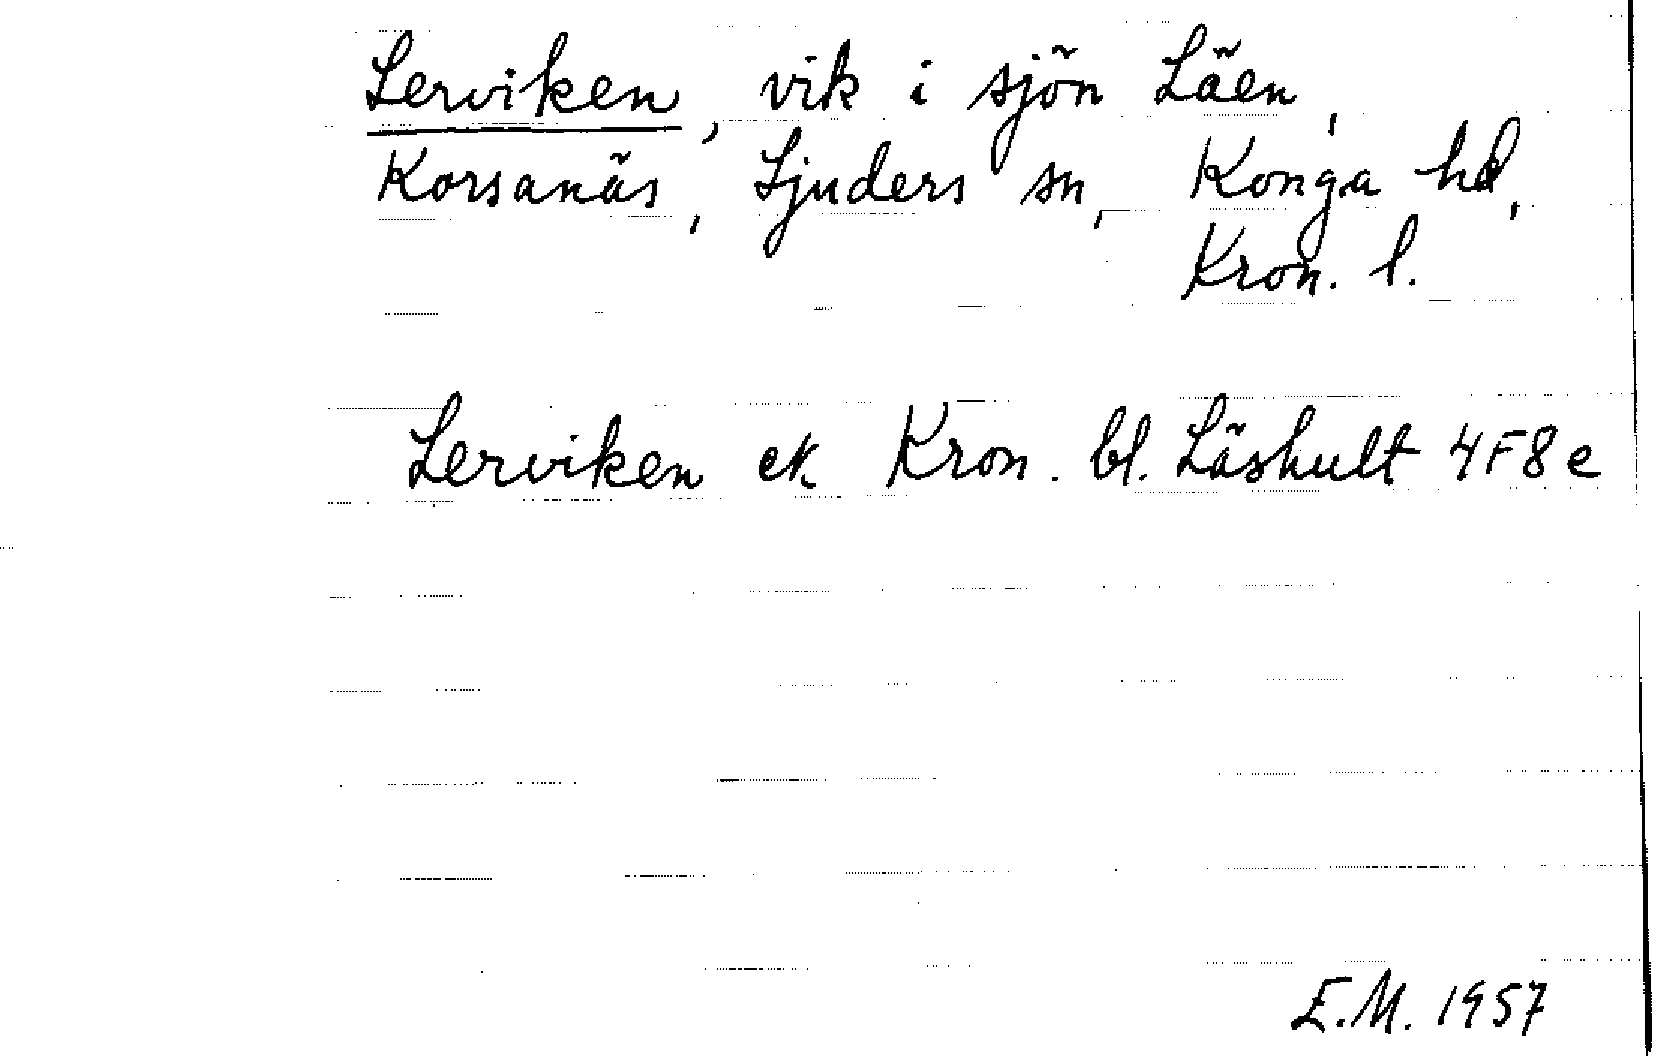 Lerviken, vik i sjön Läen,
Korsanäs, Ljuders sn, Konga hd,
Kron. l.
Lerviken ek Kron. bl. Läshult 4F8e
E.M. 1957